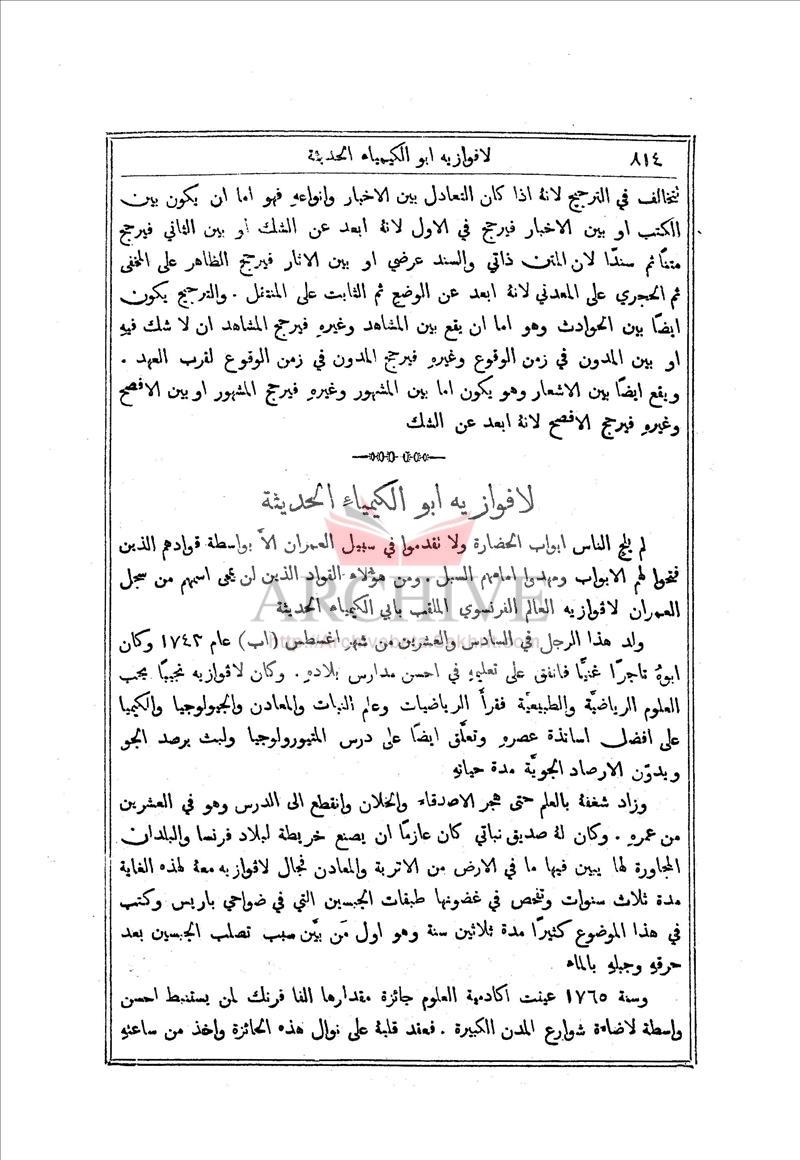 ٨١٤ لافوازيه ابو الكيمياء الحديثة
تتخالف في الترجيح لانهُ اذا كان التعادل بين الاخبار وانواعهِ فهو اما ان يكون بين
الكتب او بين الاخبار فيرجح في الاول لانهُ ابعد عن الشك او بين الثاني فيرجح
متنًا ثم سندًا لان المتن ذاتي والسند عرضي او بين الاثار فيرجح الظاهر على المخفى
ثم الحجري على المعدني لانهُ ابعد عن الوضع ثم الثابت على المنتقل . والترجيح يكون
ايضًا بين الحوادث وهو اما ان يقع بين المشاهد وغيرهِ فيرجح المشاهد ان لا شك فيهِ
او بين المدون في زمن الوقوع وغيرهِ فيرجح المدون في زمن الوقوع لقرب العهد .
ويقع ايضًا بين الاشعار وهو يكون اما بين المشهور وغيرهِ فيرجح المشهور او بين الافصح
وغيرهِ فيرجح الافصح لانهُ ابعد عن الشك
لافوازيه ابو الكيمياء الحديثة
لم يلج الناس ابواب الحضارة ولا تقدموا في سبيل العمران الاَّ بواسطة قوادهم الذين
فتحوا لهم الابواب ومهدوا امامهم السبل . ومن هؤُلاء القواد الذين لن يمحى اسمهم من سجل
العمران لافوازيه العالم الفرنسوي الملقب بابي الكيمياء الحديثة
ARCHIVE
ولد هذا الرجل في السادس والعشرين من شهر اغسطس (اب) عام ١٧٤٣ وكان
ابوهُ تاجرًا غنيًّا فانفق على تعليمهِ في احسن مدارس بلادهِ . وكان لافوازيه نجيبًا يحب
العلوم الرياضيَّة والطبيعيَّة فقرأَ الرياضيات وعالم النبات والمعادن والجيولوجيا والكيميا
على افضل اساتذة عصرهِ وتعلَّق ايضًا على درس المتيورولوجيا ولبث يرصد الجو
ويدوّن الارصاد الجويَّة مدة حياتهِ
وزاد شغفهُ بالعلم حتى هجر الاصدقاء والخلان وانقطع الى الدرس وهو في العشرين
من عمرهِ . وكان لهُ صديق نباتي كان عازمًا ان يصنع خريطة لبلاد فرنسا والبلدان
المجاورة لها يبين فيها ما في الارض من الاتربة والمعادن فجال لافوازيه معهُ لهذه الغاية
مدة ثلاث سنوات وتفحص في غضونها طبقات الجبسين التي في ضواحي باريس وكتب
في هذا الموضوع كثيرًا مدة ثلاثين سنة وهو اول مَن بيَّن سبب تصلب الجبسين بعد
حرقهِ وجبلهِ بالماء
وسنة ١٧٦٥ عينت اكادمية العلوم جائزة مقدارها الفا فرنك لمن يستنبط احسن
واسطة لاضاءة شوارع المدن الكبيرة . فعقد قلبهُ على نوال هذه الجائزة واخذ من ساعتهِ